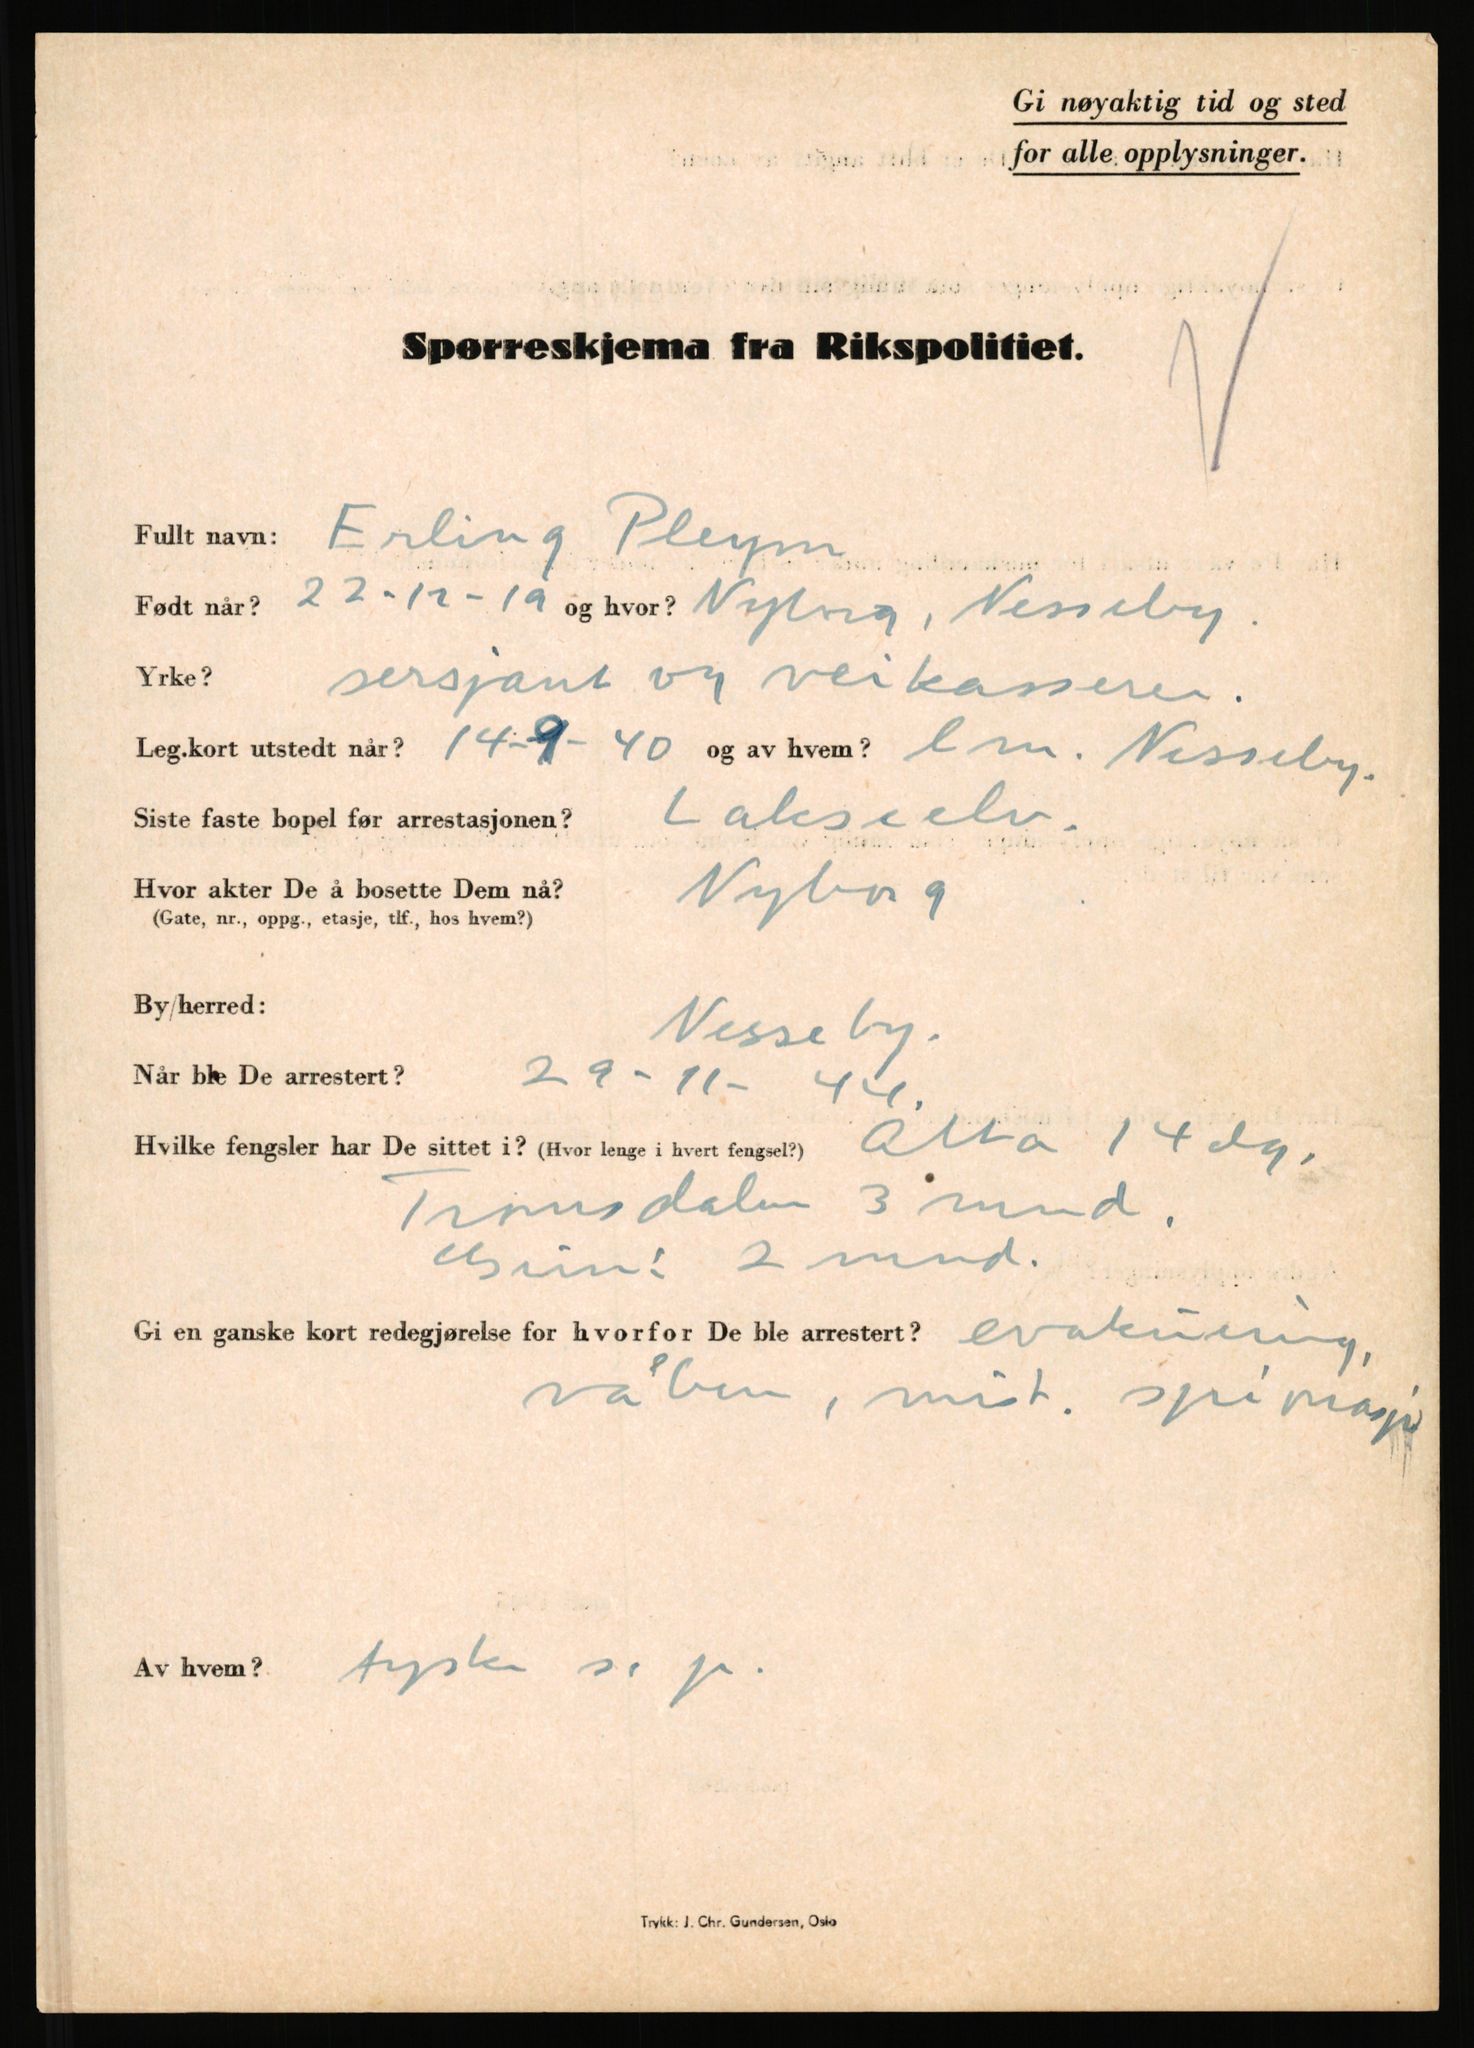 Gi nøyaktig tid og sted
for alle opplysninger.
Spørreskjema fra Rikspolitiet.
Fullt navn: Erling Pleym
Født når? 22-12-19 og hvor? Nyborg, Nesseby.
Yrke? sersjant og veikasserer.
Leg.kort utstedt når? 14-9-40 og av hvem? lm. Nesseby.
Siste faste bopel før arrestasjonen? Lakselv.
Hvor akter De å bosette Dem nå? Nyborg
(Gate, nr., oppg., etasje, tlf., hos hvem?)
By/herred: Nesseby.
Når ble De arrestert? 29-11-44.
Hvilke fengsler har De sittet i? (Hvor lenge i hvert fengsel?) Alta 14 dg.
Tromsdalen 3 mnd.
2 mnd.
Gi en ganske kort redegjørelse for hvorfor De ble arrestert? evakuering,
våben, mist. spionasje
Av hvem? tyske s. p.
Trykk: J. Chr. Gundersen, Oslo